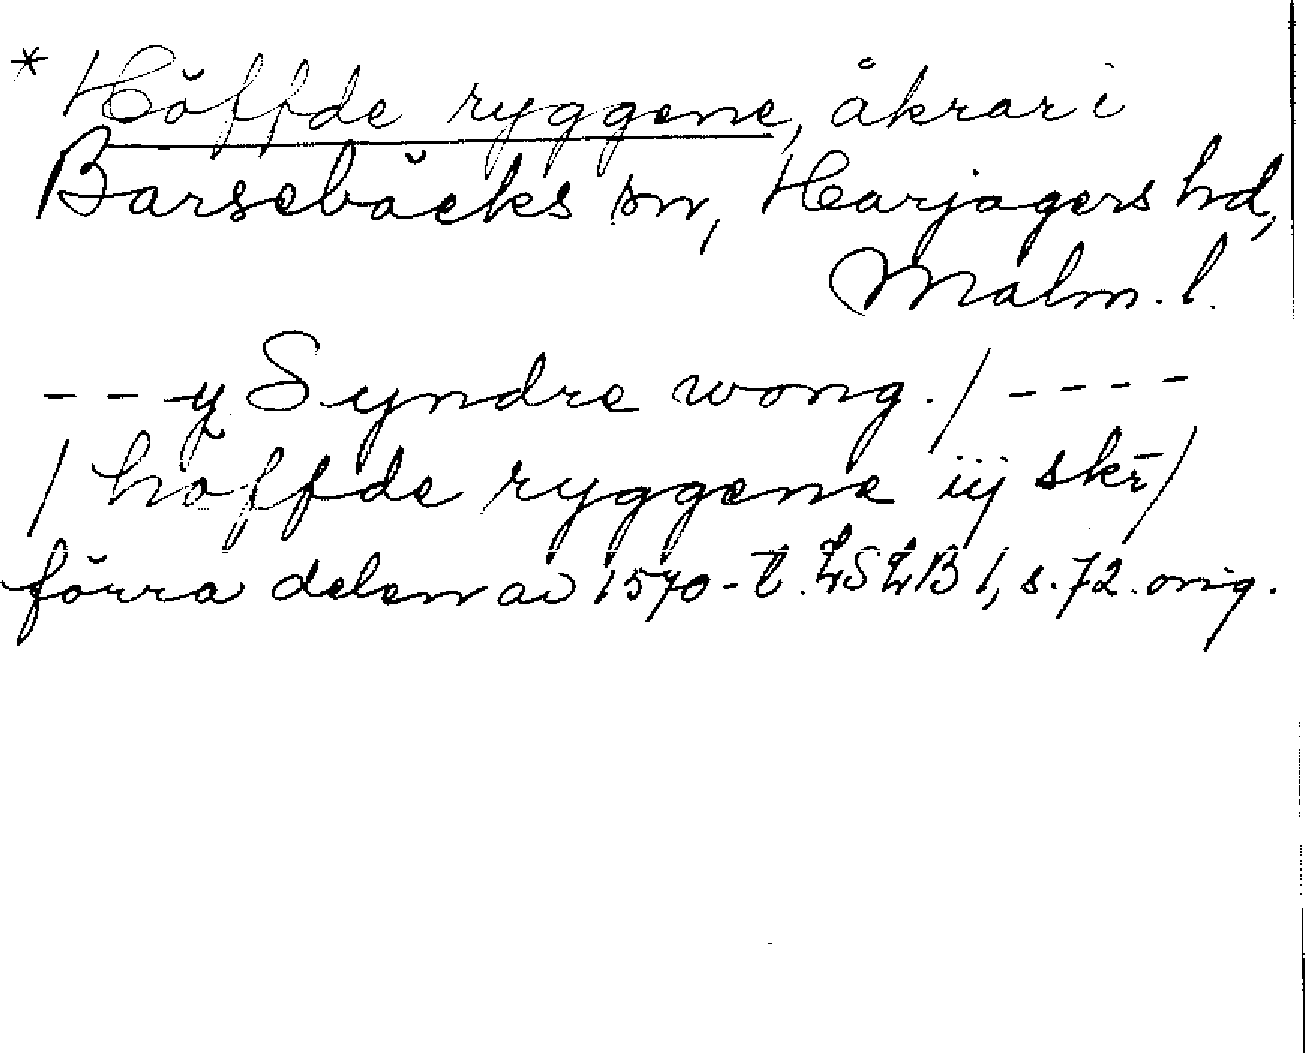 * Höffde ryggene, åkrar i
Barsebäcks sn, Harjagers hd,
Malm. l.
- - - y Syndre wong. / - - - -
/ höffde ryggene iij skr /
förra delen av 1570-t. LSLB 1, s. 72. orig.